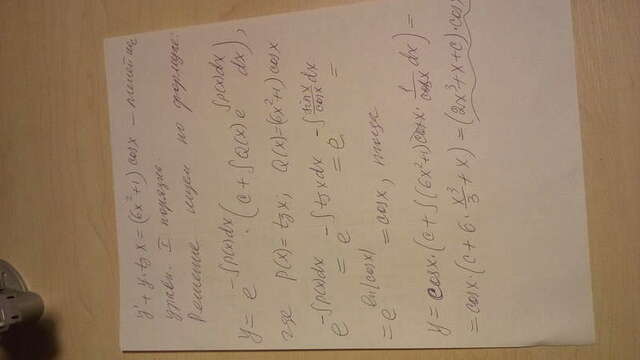 y' + y·tg x = (6x²+1) cosx – линейное
уравн. I порядка
Решение ищем по формуле:
y = e^{-∫p(x)dx} · (c + ∫Q(x) e^{∫p(x)dx} dx),
где p(x) = tg x; Q(x) = (6x²+1) cosx
e^{-∫p(x)dx} = e^{-∫tg x dx} = e^{-∫\frac{sin x}{cos x} dx} =
= e^{ln|cosx|} = cosx, тогда
y = cosx · (c + ∫(6x²+1) cosx · \frac{1}{cosx} dx) =
= cosx · (c + 6 · \frac{x³}{3} + x) = (2x³ + x + c) · cosx